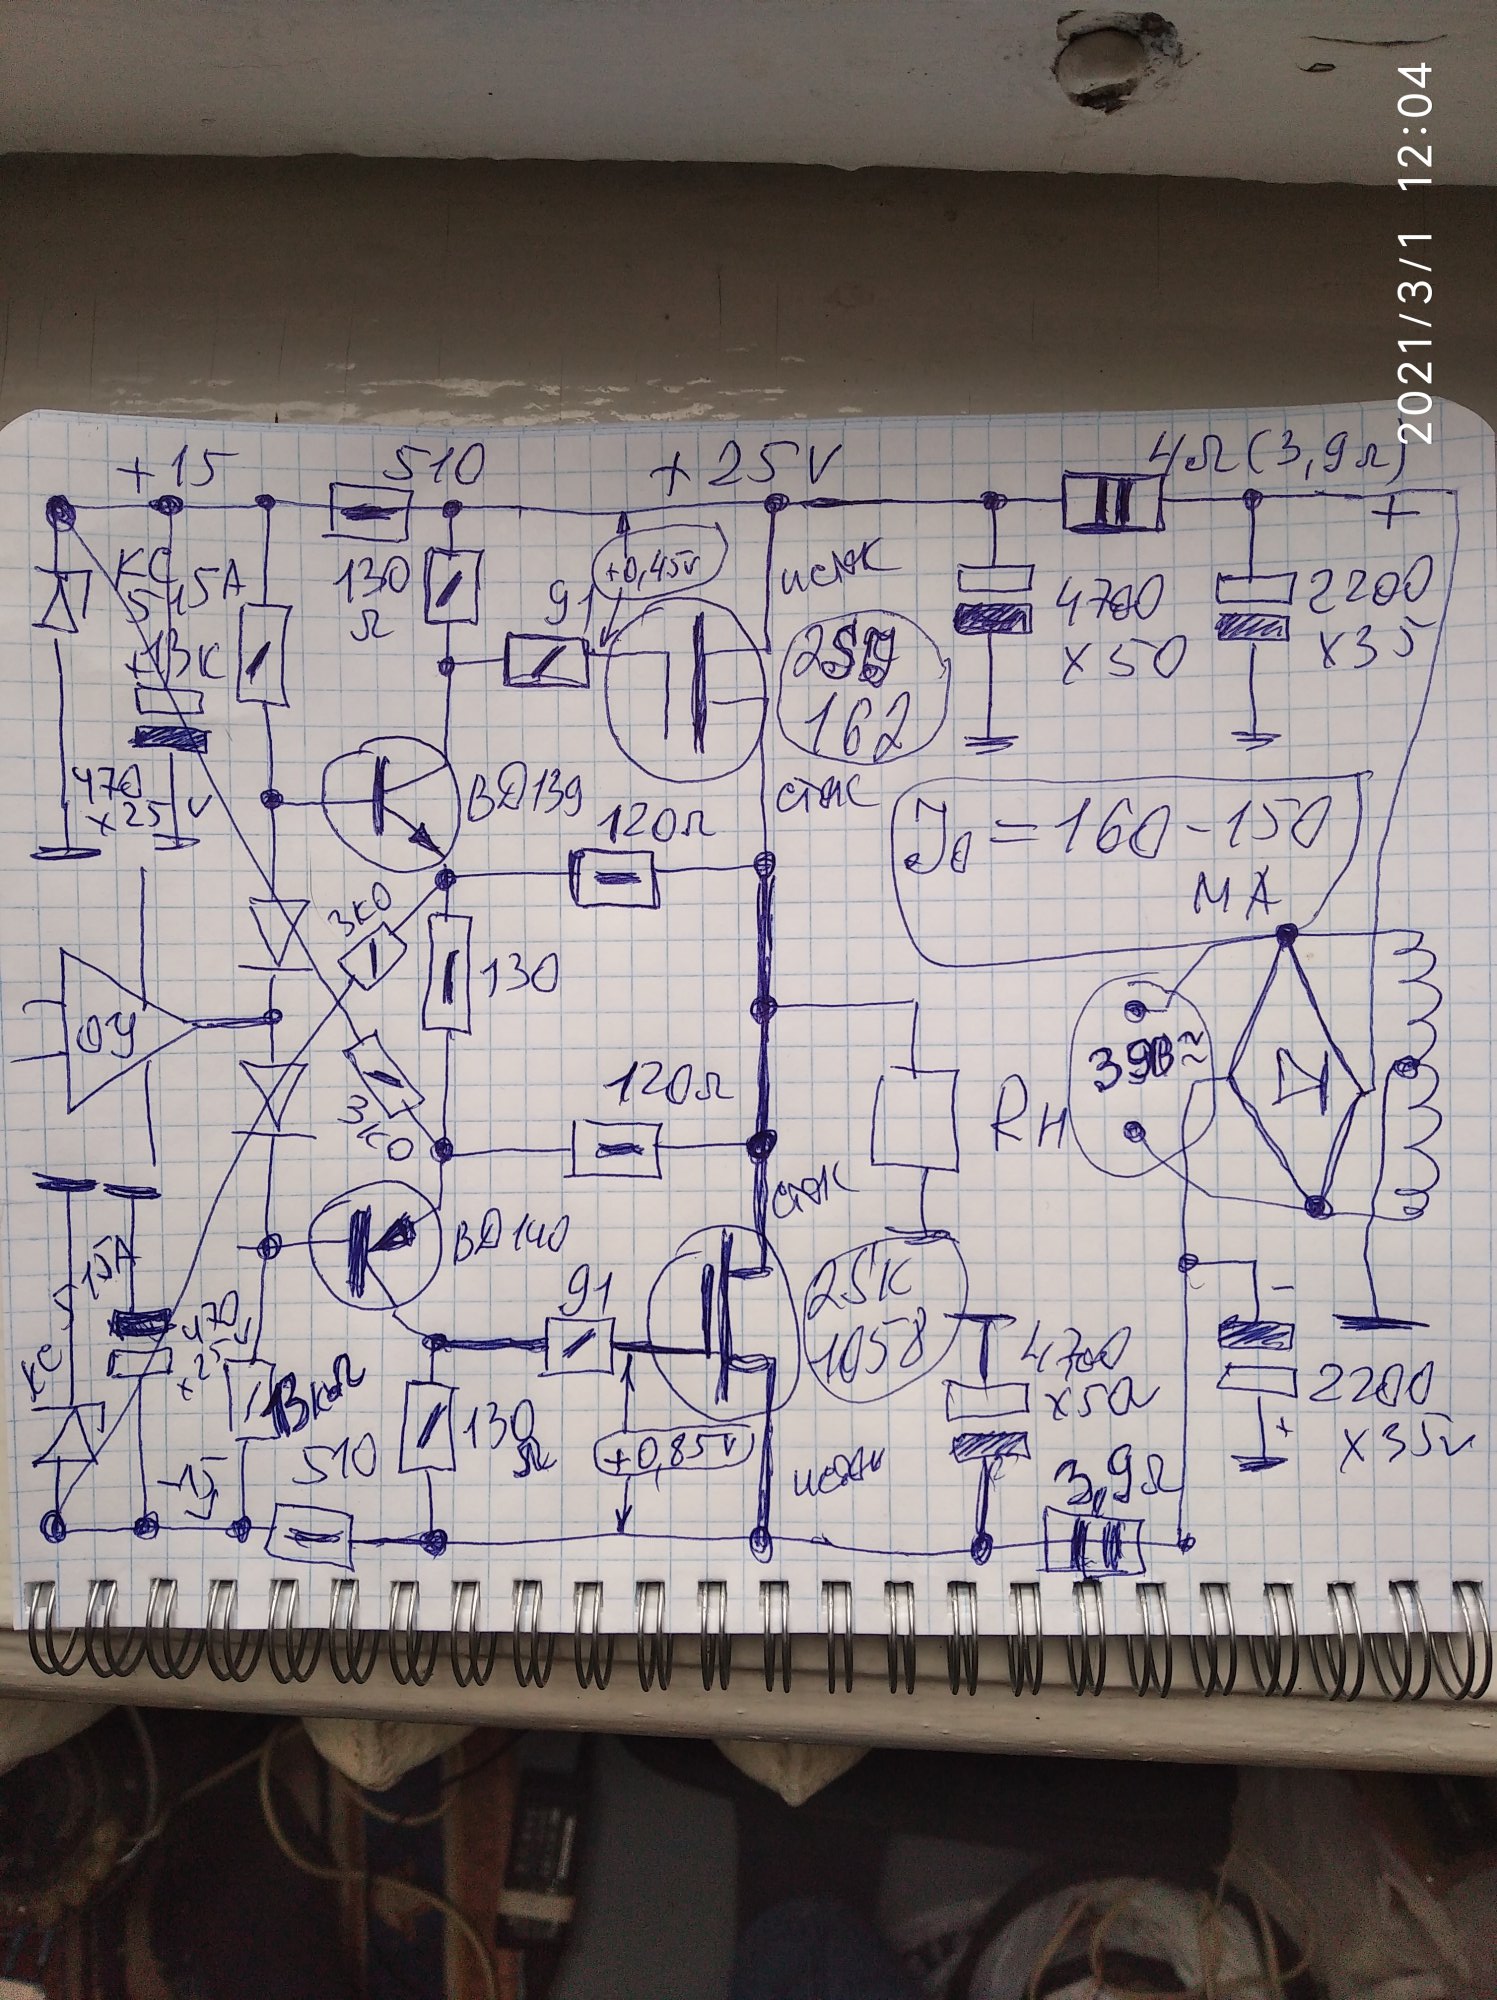 2021/3/1 12:04
+15
510
+25V
4Ω(3,9Ω)
+
КС
515А
130
Ω
91
+0,45V
исток
4700
x50
2200
x35
13К
162
470
x25V
BD139
120Ω
сток
J0=160-150
MA
3К0
130
ОУ
39В~
3К0
120Ω
RH
сток
BD140
15А
КС
470
x25V
91
2SK
1058
4700
x50
-
+
2200
x35V
13кΩ
-15
510
130
Ω
+0,85V
исток
3,9Ω